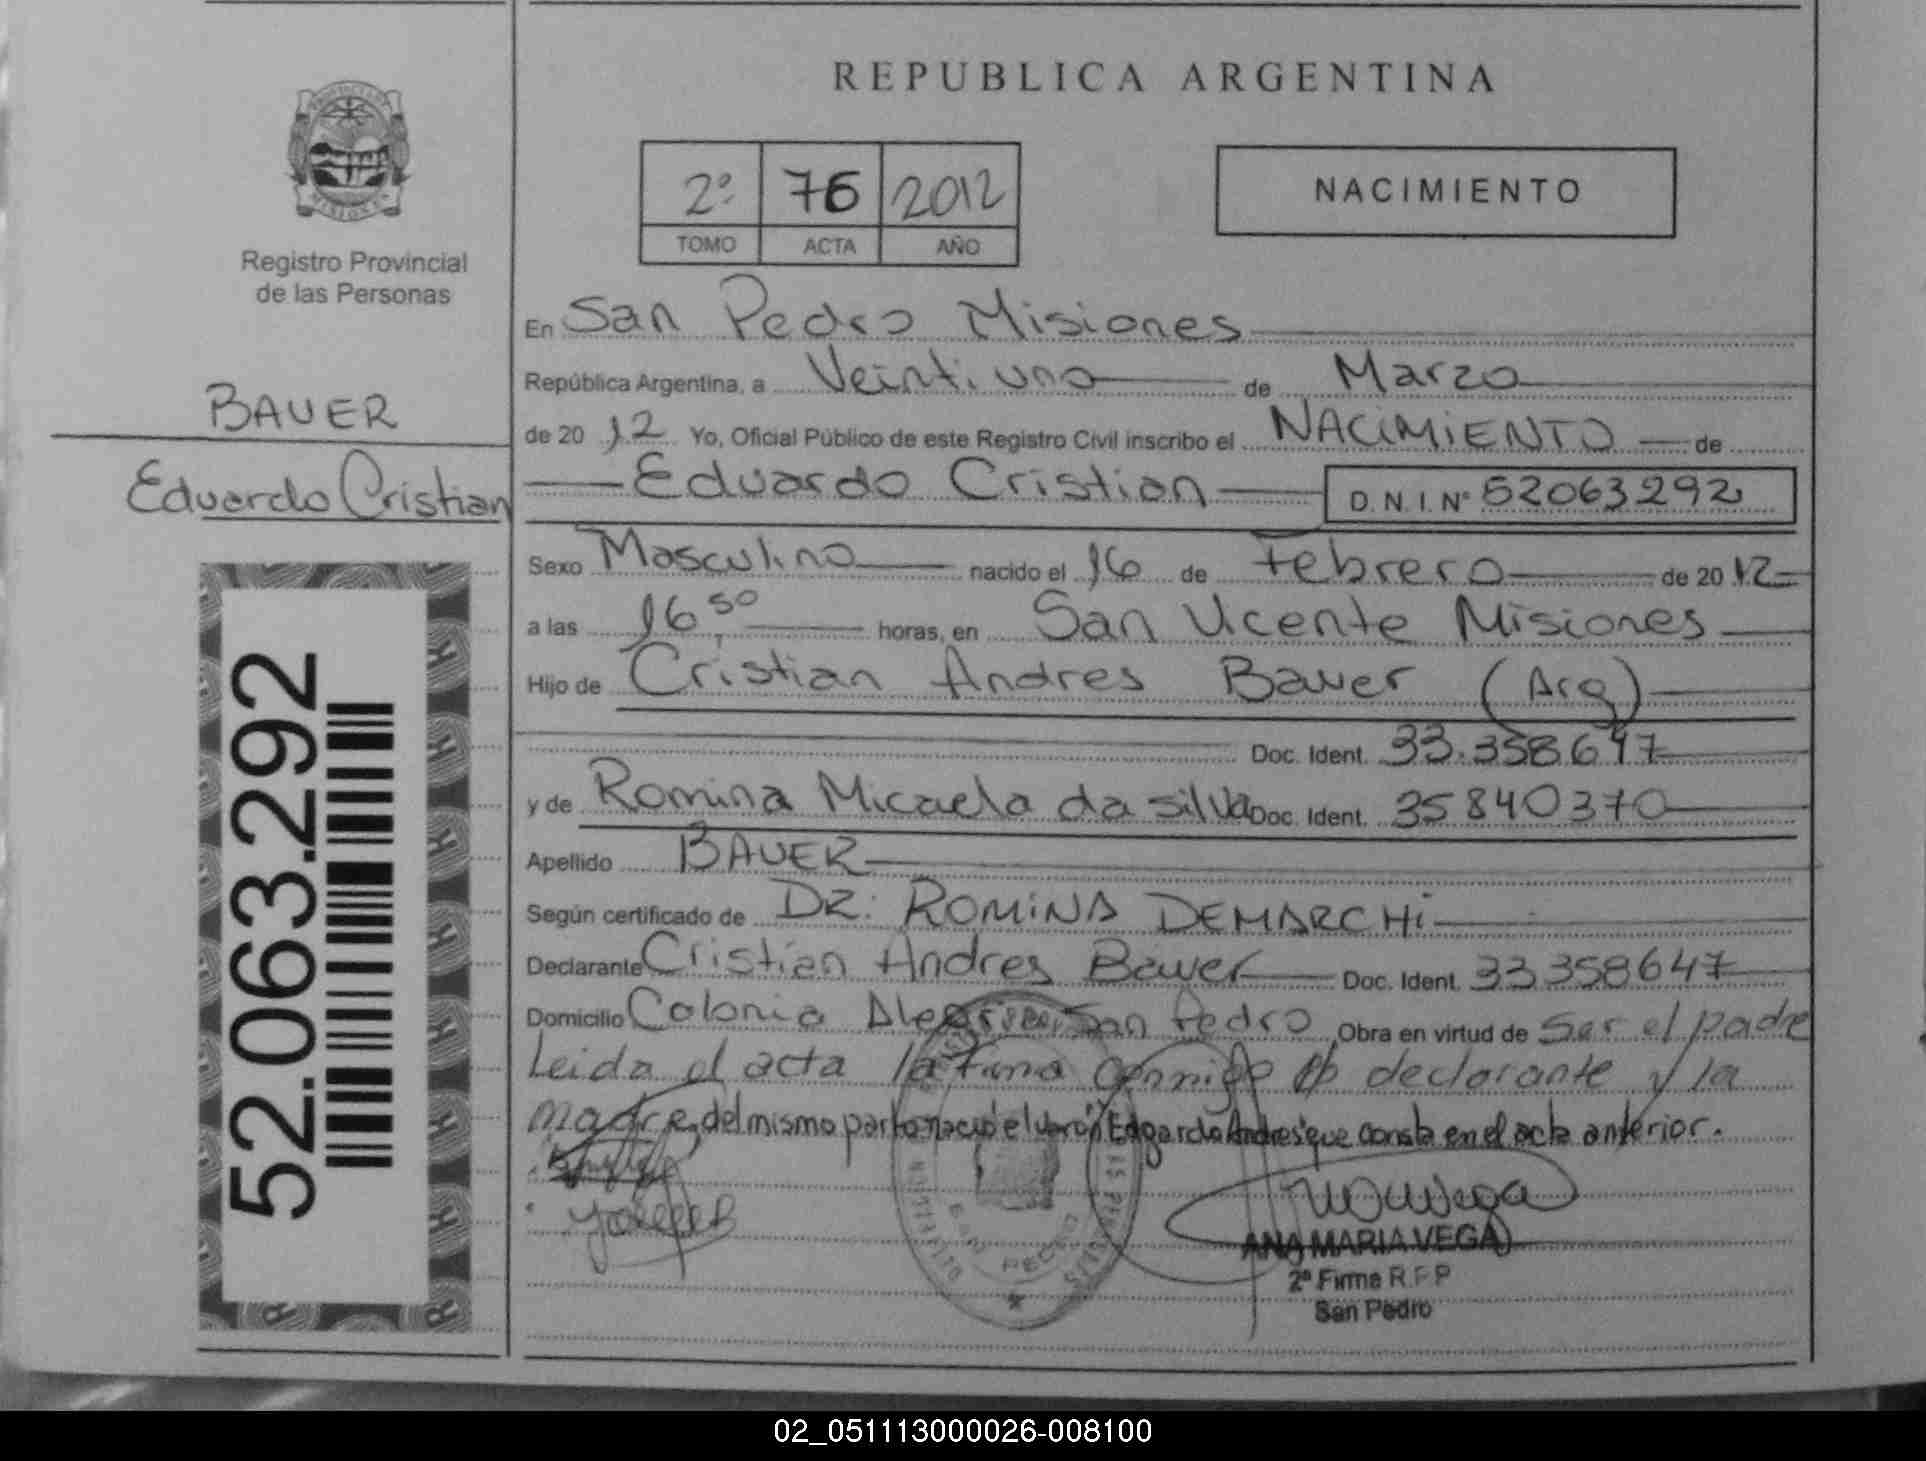 REPUBLICA ARGENTINA
2º 76 2012
TOMO ACTA AÑO
NACIMIENTO
PROVINCIA DE MISIONES
Registro Provincial
de las Personas
BAUER
Eduardo Cristian
52.063.292
En San Pedro Misiones
República Argentina, a Veintiuno de Marzo
de 20 12 Yo, Oficial Público de este Registro Civil inscribo el NACIMIENTO de
Eduardo Cristian D.N.I.Nº 52063292
Sexo Masculino nacido el 16 de Febrero de 20 12
a las 16,50 horas, en San Vicente Misiones
Hijo de Cristian Andres Bauer (Arg)
Doc. Ident. 33.358647
y de Romina Micaela da silva Doc. Ident. 35840370
Apellido BAUER
Según certificado de DR: ROMINA DEMARCHI
Declarante Cristian Andres Bauer Doc. Ident. 33358647
Domicilio Colonia Alegria, San Pedro Obra en virtud de Ser el padre
Leida el acta la firma conmigo el declarante y la
madre, del mismo parto nacio el varon "Edgardo Andres" que consta en el acta anterior.
SAN PEDRO
ANA MARIA VEGA
2ª Firma R.P.P
San Pedro
02_051113000026-008100